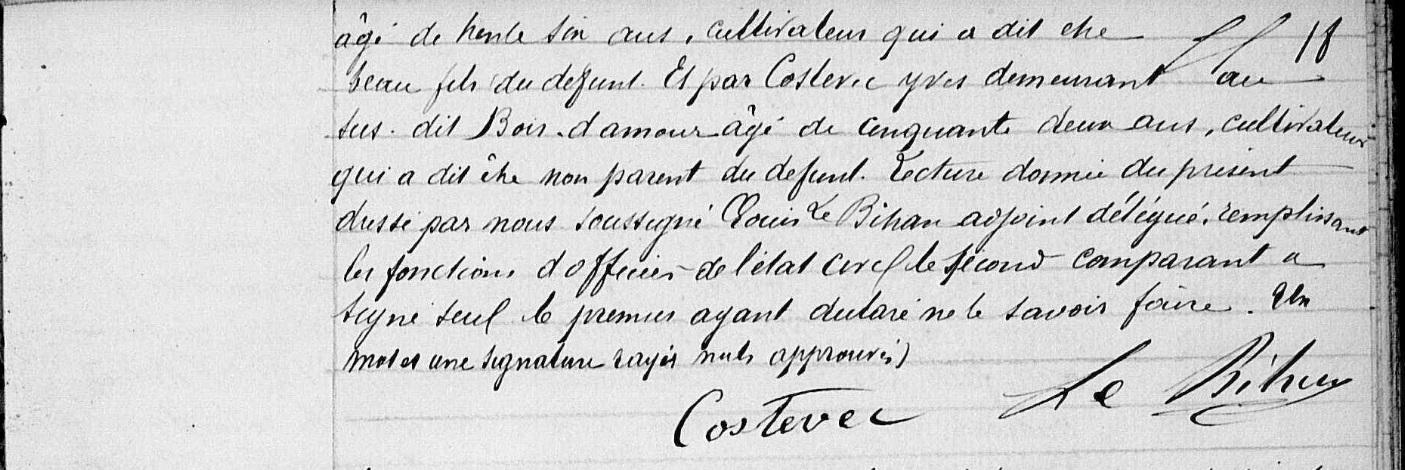 âgé de trente six ans, cultivateur qui a dit etre 18
beau fils du defunt. Et par Costevec yves demeurant au
sus. dit Bois d'amour âgé de cinquante deux ans, cultivateur
qui a dit être non parent du defunt. Lecture donnée du présent
dressé par nous soussigné Louis Le Bihan adjoint délégué, remplissant
les fonctions d'officier de l'état civil le second comparant a
signé seul le premier ayant declaré ne le savoir faire. Un
mot et une signature rayés nuls approuvés)
Costevec Le Bihan